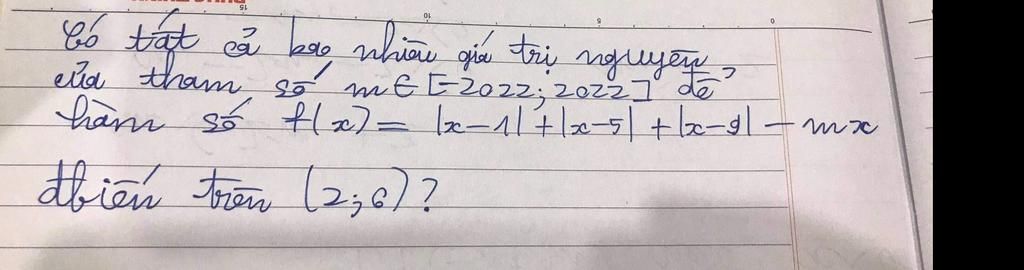 15 10 5 0
Có tất cả bao nhiêu giá trị nguyên
của tham số m ∈ [-2022; 2022] để
hàm số f(x) = |x-1| + |x-5| + |x-9| - mx
đbiến trên (2; 6)?